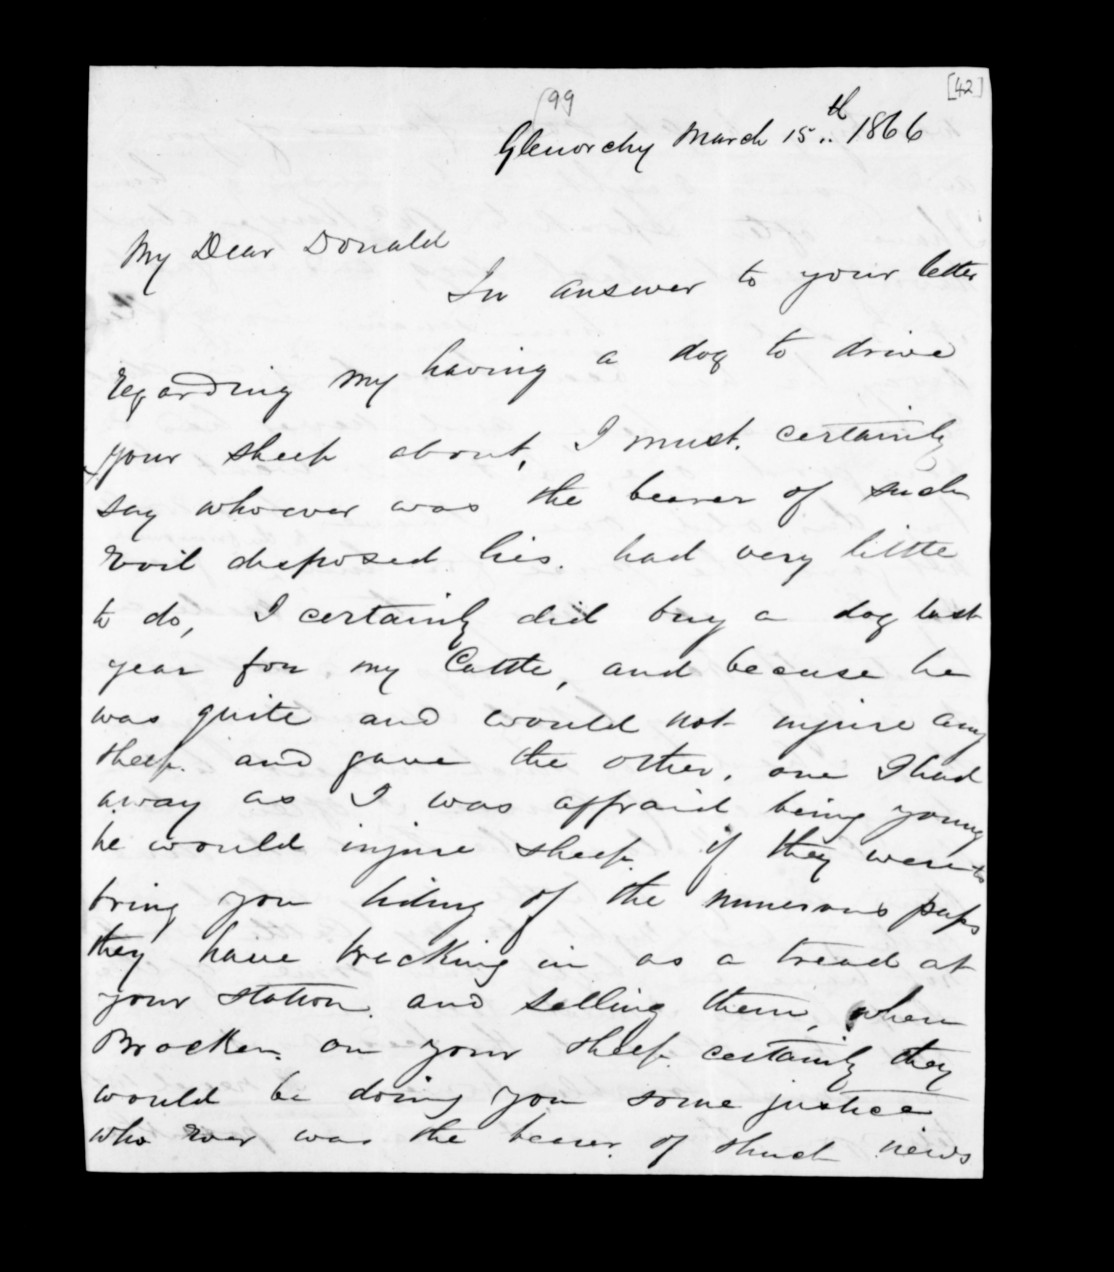 [42]
99
Glenorchy March 15th 1866
My Dear Donald
In answer to your letter
regarding my having a dog to drive
your sheep about, I must. certainly
say whoever was the bearer of such
evil disposed lies. had very little
to do, I certainly did buy a dog last
year for my Cattle, and becuse he
was quite and would not injure any
sheep. and gave the other, one I had
away as I was affraid being young
he would injure sheep. if they were to
bring you tiding of the numerous pups
they have breaking in as a tread at
your station. and selling them, when
Brocken on your sheep certainly they
would be doing you some justice
who ever was the bearer of shuch news